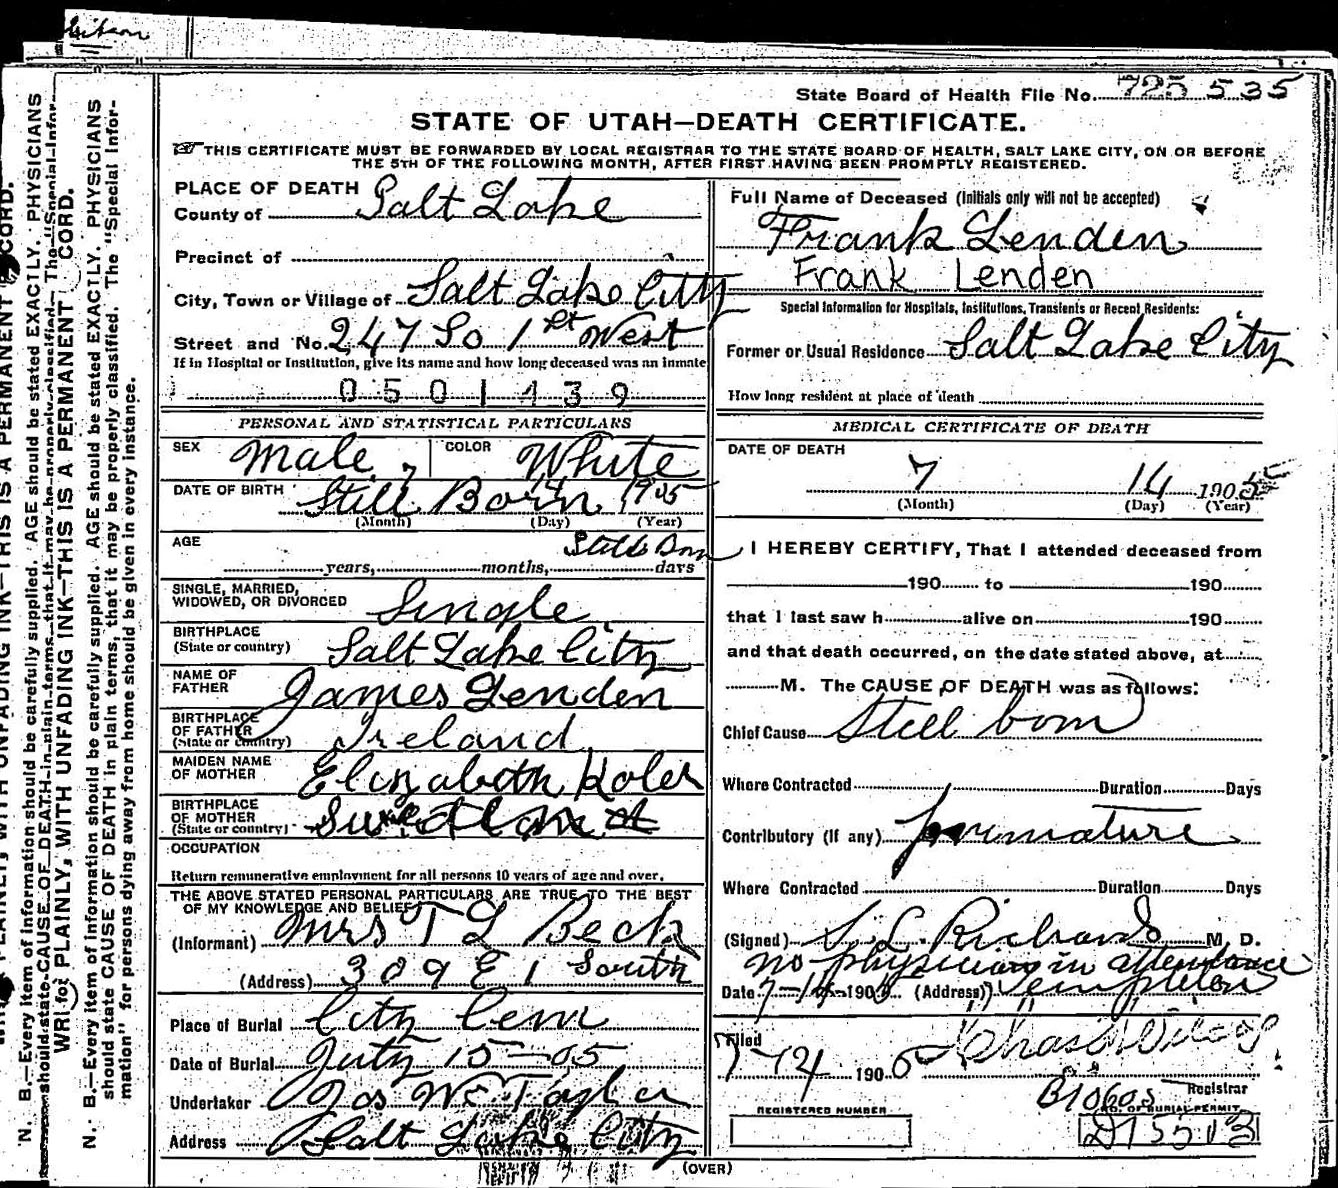 State Board of Health File No. 725 535
STATE OF UTAH—DEATH CERTIFICATE.
THIS CERTIFICATE MUST BE FORWARDED BY LOCAL REGISTRAR TO THE STATE BOARD OF HEALTH, SALT LAKE CITY, ON OR BEFORE
THE 5TH OF THE FOLLOWING MONTH, AFTER FIRST HAVING BEEN PROMPTLY REGISTERED.
PLACE OF DEATH
County of Salt Lake
Precinct of
City, Town or Village of Salt Lake City
Street and No. 247 So 1st West
If in Hospital or Institution, give its name and how long deceased was an inmate
0501439
PERSONAL AND STATISTICAL PARTICULARS
SEX Male COLOR White
DATE OF BIRTH Still Born 14 1905
(Month) (Day) (Year)
AGE Still Born
years, months, days
SINGLE, MARRIED,
WIDOWED, OR DIVORCED Single
BIRTHPLACE
(State or country) Salt Lake City
NAME OF
FATHER James Lenden
BIRTHPLACE
OF FATHER
(State or country) Ireland
MAIDEN NAME
OF MOTHER Elizabeth Koler
BIRTHPLACE
OF MOTHER
(State or country)
OCCUPATION
Return remunerative employment for all persons 10 years of age and over.
THE ABOVE STATED PERSONAL PARTICULARS ARE TRUE TO THE BEST
OF MY KNOWLEDGE AND BELIEF
(Informant) Mrs T L Beck
(Address) 309 E 1 South
Place of Burial City Cem
Date of Burial July 15-05
Undertaker Jos Wm Taylor
Address Salt Lake City
Full Name of Deceased (Initials only will not be accepted)
Frank Lenden
Frank Lenden
Special Information for Hospitals, Institutions, Transients or Recent Residents:
Former or Usual Residence Salt Lake City
How long resident at place of death
MEDICAL CERTIFICATE OF DEATH
DATE OF DEATH
7 14 1905
(Month) (Day) (Year)
I HEREBY CERTIFY, That I attended deceased from
190 to 190
that I last saw h alive on 190
and that death occurred, on the date stated above, at
M. The CAUSE OF DEATH was as follows:
Chief Cause Still born
Where Contracted Duration Days
Contributory (If any) Premature
Where Contracted Duration Days
(Signed) S. L. Richards M. D.
no physician in attendance
Date 7-14-190 (Address) Templeton
Filed
7 14 1905 Chas
Registrar
B10605
NO. OF BURIAL PERMIT
REGISTERED NUMBER
D15513
(OVER)
N. B.—Every item of information should be carefully supplied. AGE should be stated EXACTLY. PHYSICIANS
should state CAUSE OF DEATH in plain terms, that it may be properly classified. The "Special Infor-
WRI PLAINLY, WITH UNFADING INK—THIS IS A PERMANENT CORD.
N. B.—Every item of information should be carefully supplied. AGE should be stated EXACTLY. PHYSICIANS
should state CAUSE OF DEATH in plain terms, that it may be properly classified. The "Special Infor-
mation" for persons dying away from home should be given in every instance.